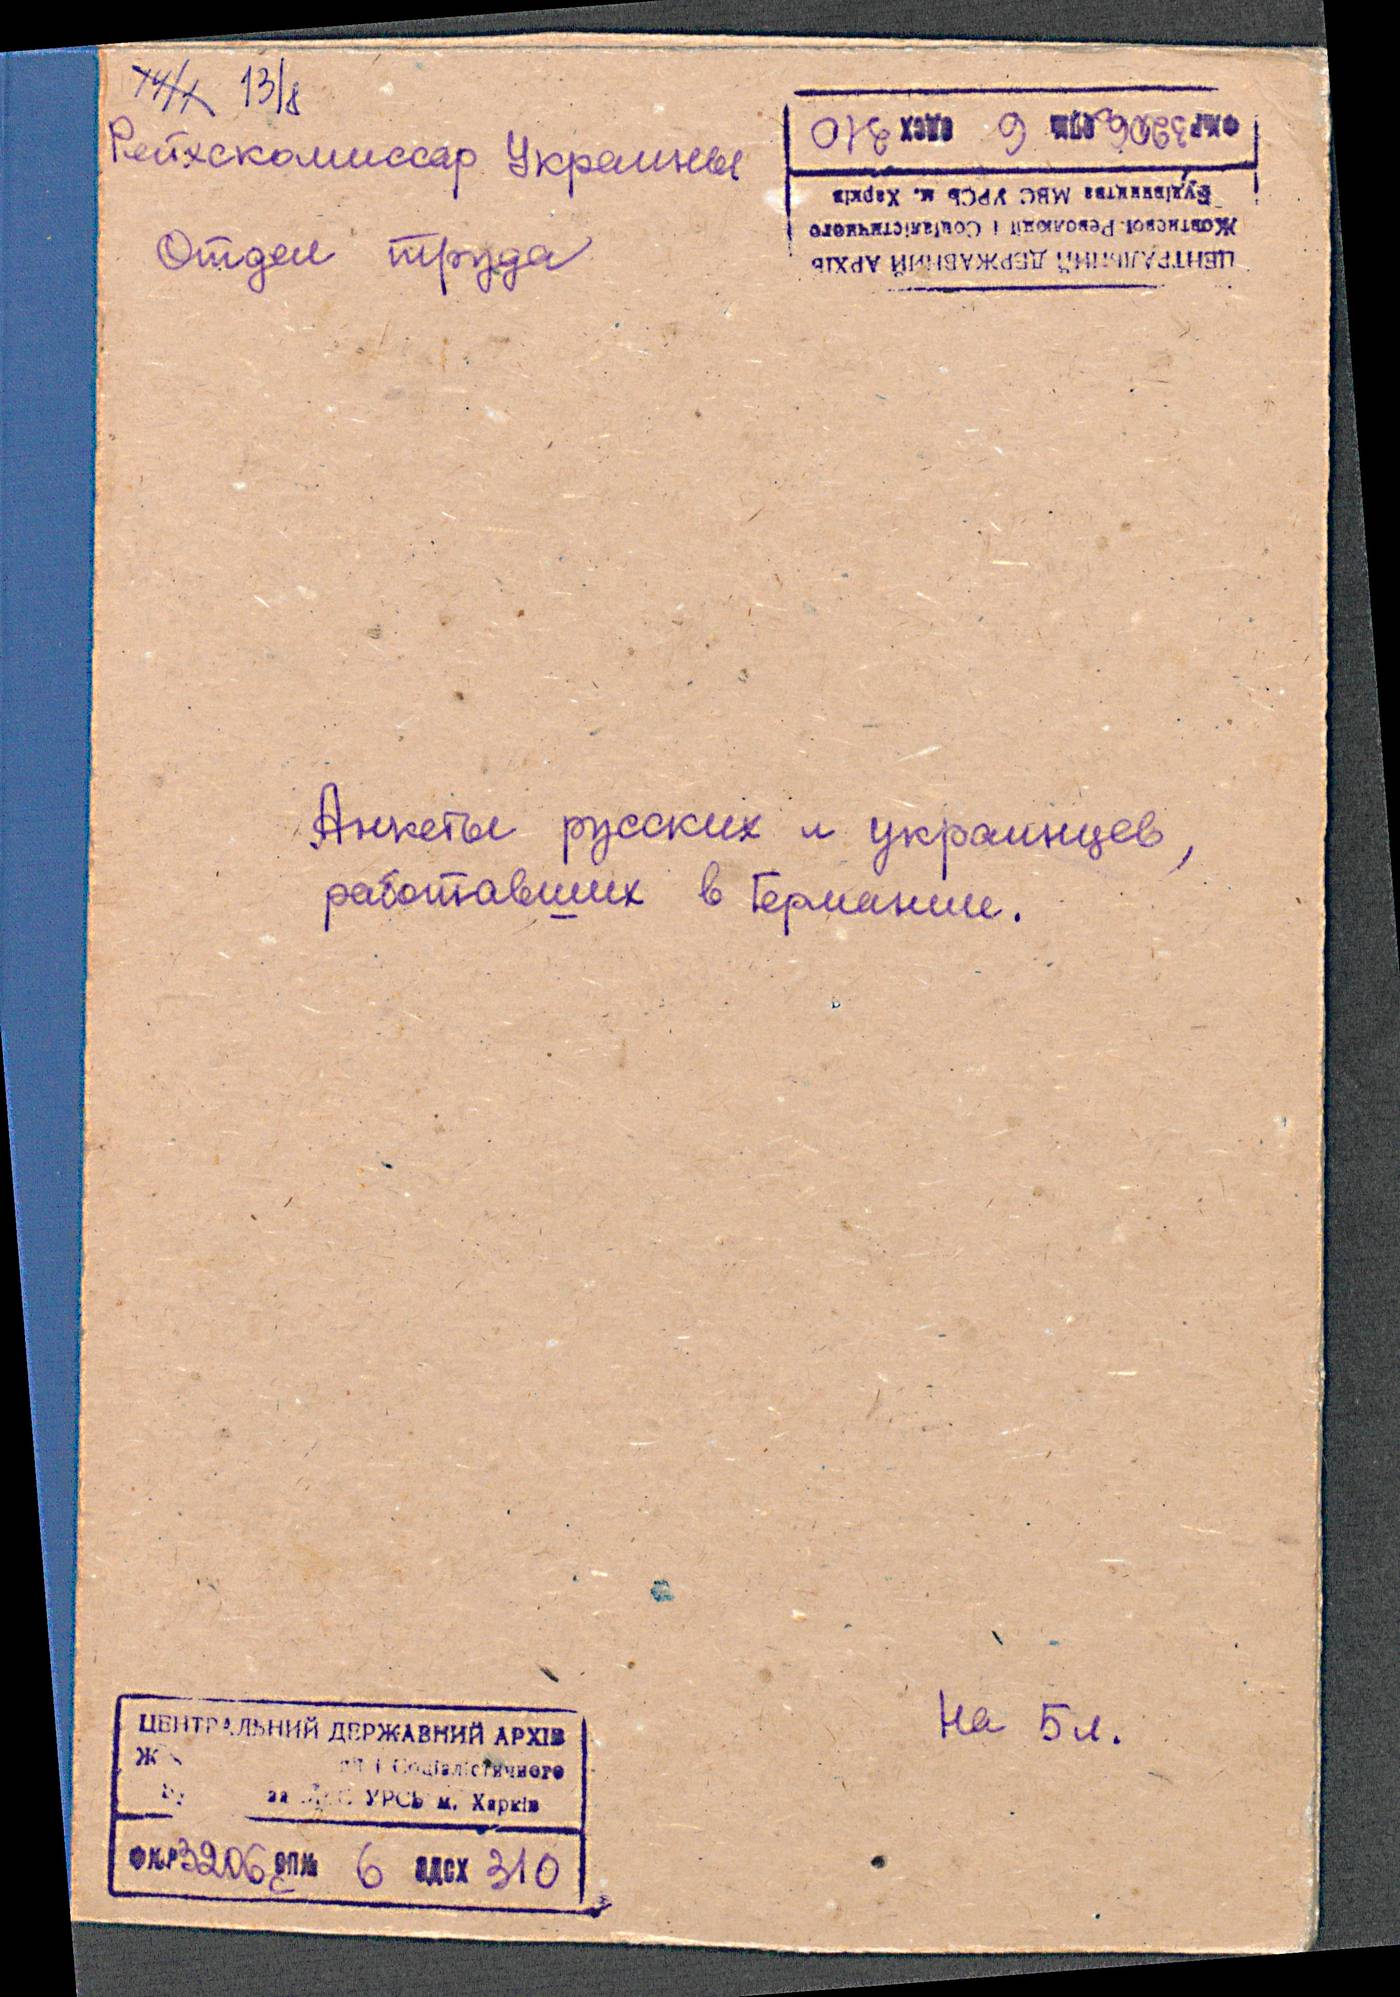 13/8
Рейхскомиссар Украины
Отдел труда
ЦЕНТРАЛЬНИЙ ДЕРЖАВНИЙ АРХІВ
Жовтневої Революції і Соціалістичного
Будівництва МВС УРСР м. Харків
ФКР 3206 ОПИ 6 ОДСХ 310
Анкеты русских и украинцев,
работавших в Германии.
На 5 л.
ЦЕНТРАЛЬНИЙ ДЕРЖАВНИЙ АРХІВ
Ж і Соціалістичного
УРСР м. Харків
ФКР 3206 ОПИ 6 ОДСХ 310